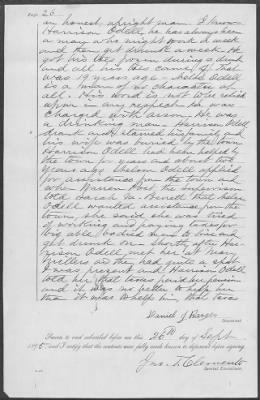 Page 26
an honest, upright man. I know
Harrison Odell he has always been
a man who might work a week
and then get drunk a week. He
got his leg frozen during a drunk
and all his toes came off that
was 19 years ago - Odell
is a man of no character at
all. His word is not to be relied
upon in any respect. He was
charged with arson. He was
a drinking man. Harrison Odell
drank and starved his family and
his wife was buried by the town
Harrison Odell had been helped by
the town for years and about two
years ago Odell applied
for assistance from the town and
when Warren Post the Supervisor
told Sarah that
Odell wanted assistance from the
town, she said she was tired
of working and paying taxes for
big able bodied men to live and
get drunk on. Shortly after Har-
rison Odell met her at
and they had quite a spat
I was present and Harrison Odell
told her that taxes paid her pension
and it was no to help him
than it was to help him, that taxes
Daniel J.
Deponent.
Sworn to and subscribed before me this 26th day of Sept
1895, and I certify that the contents were fully made known to deponent before signing.
Jas. T. Clements
Special Examiner.